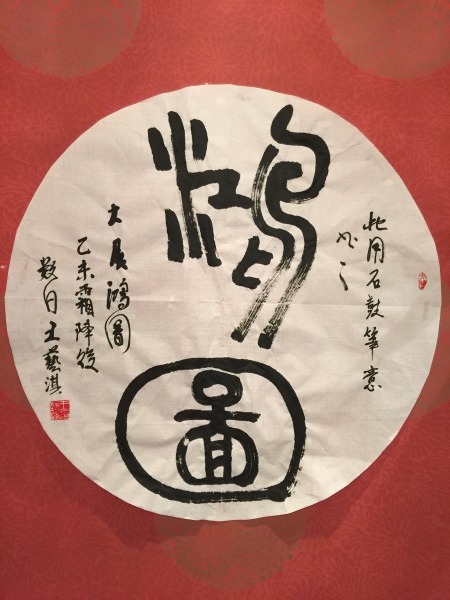 鴻圖
此用石鼓筆意
為之
大展鴻圖
乙未霜降後
數日王藝淇